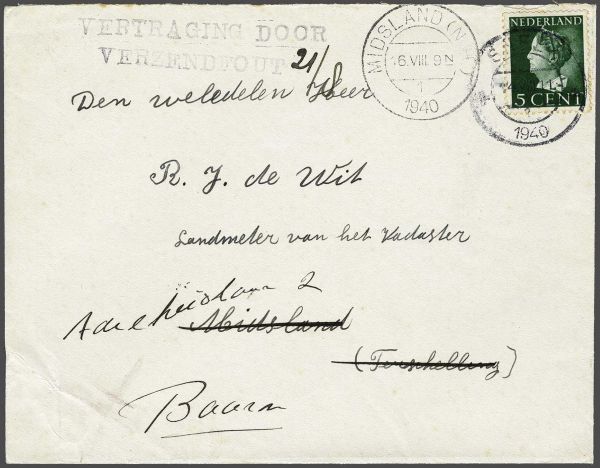 VERTRAGING DOOR
VERZENDFOUT
21/8
MIDSLAND (N.H.)
16.VIII 9N
1
1940
NEDERLAND
5 CENT
1940
Den weledelen Heer
R. J. de Wit
Landmeter van het Kadaster
Adelheidlaan 2
Midsland
(Terschelling)
Baarn